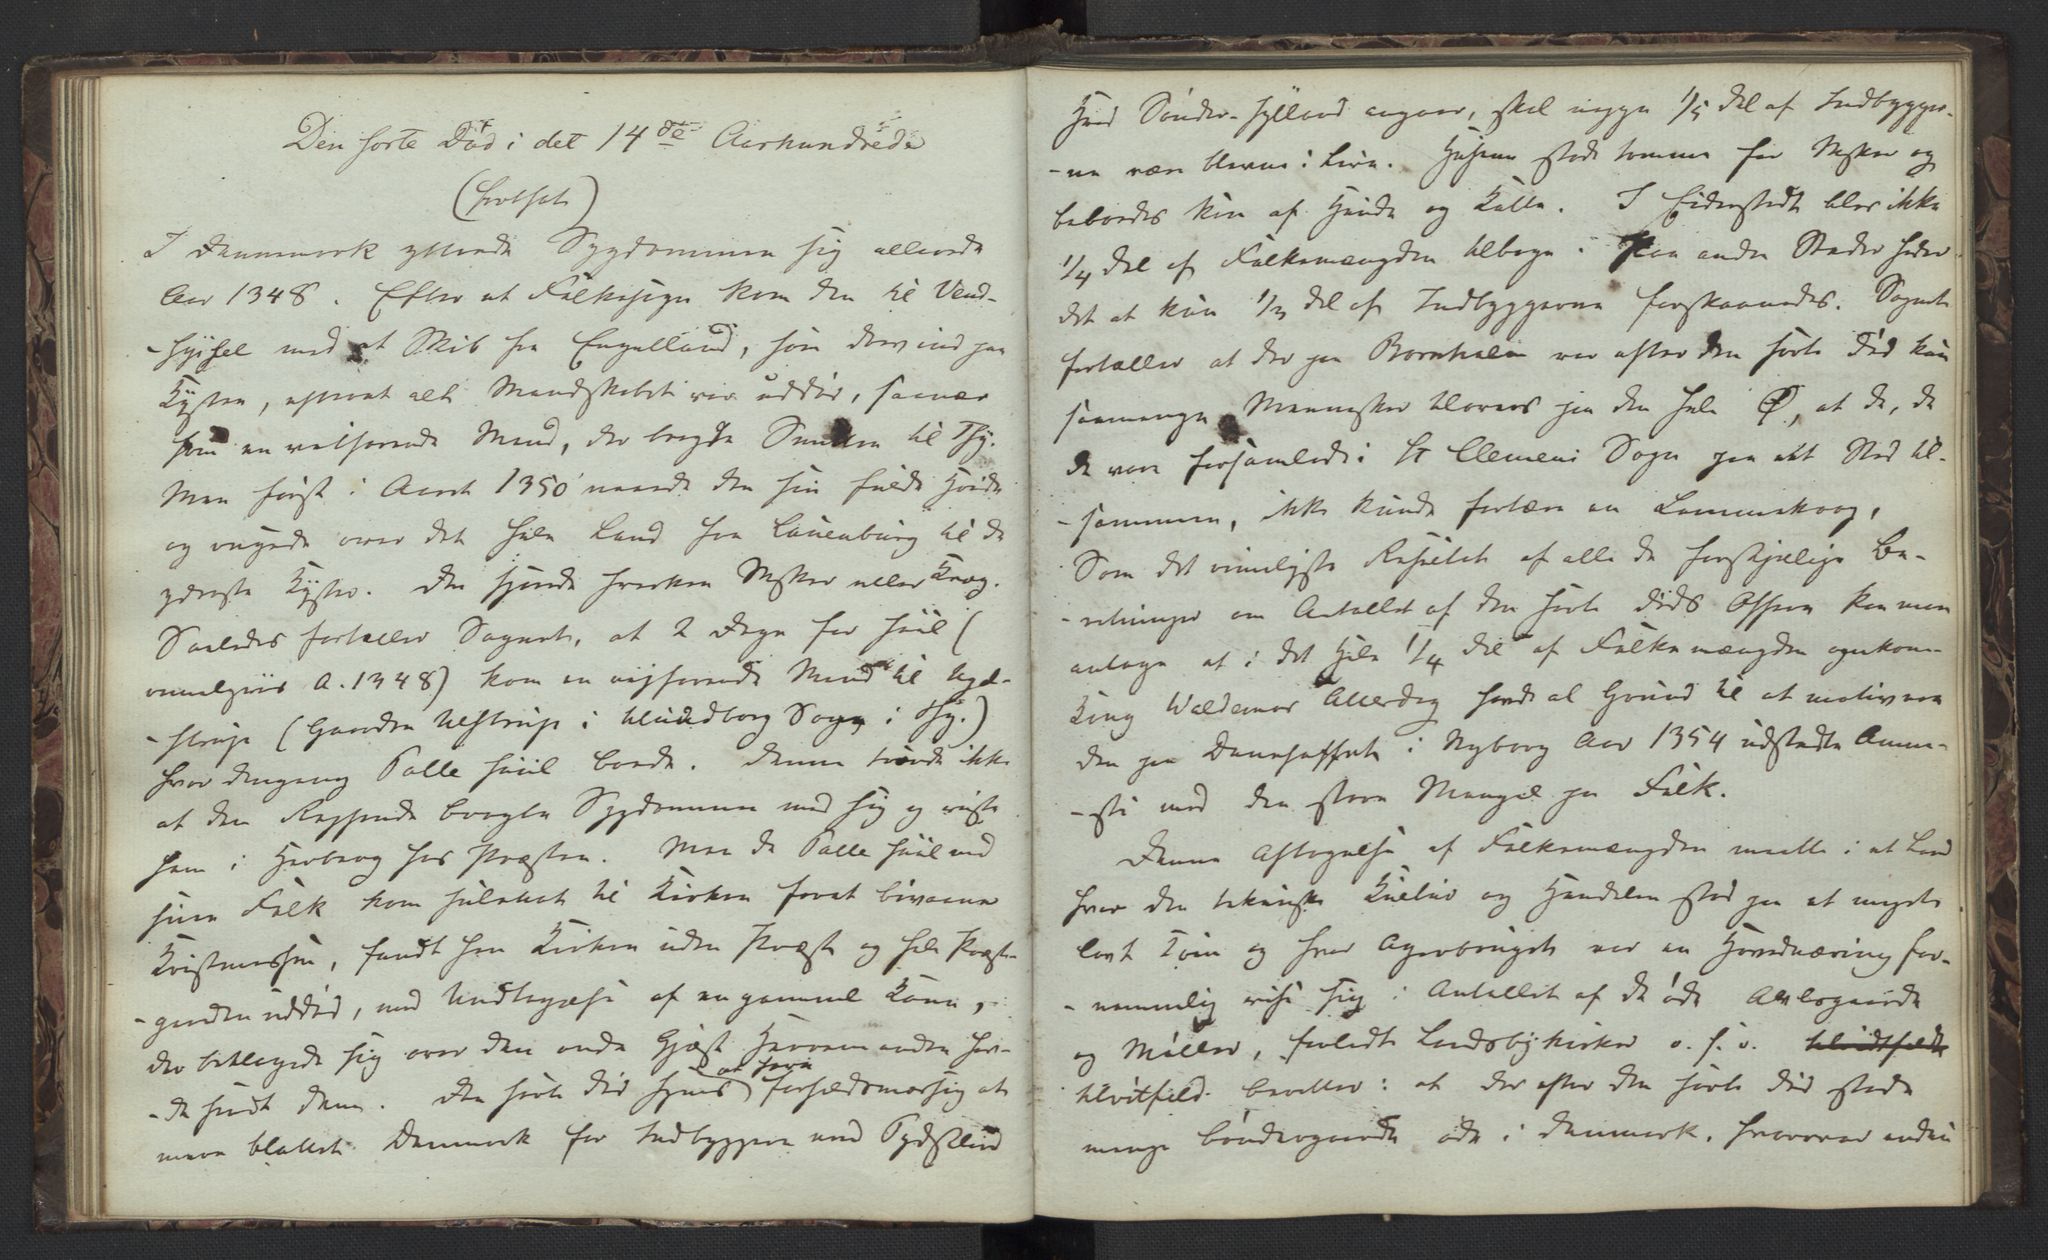 Den sorte Død i det 14de Aarhundrede
(fortsat)
I Dannemark yttrede Sygdommen sig allerede
Aar 1348. Efter et Folkesagn kom den til Vend-
-syssel med et Skib fra Engelland, som drev ind paa
Kysten, efterat alt Mandskabet var uddøe, saavær
som en velhavende Mand, der bragte Smitten til Thy.
Men først i Aaret 1350 naaede den sin fulde Høide
og rasede over det hele Land fra Lauenburg til de
yderste Kyster. Den skjende hverken Mskr eller Kvæg.
Saaledes fortæller Sagnet, at 2 Dage før Juul (
rimeligviis A. 1348) kom en veifarende Mand til
-strup (Gaarden Ulstrup i Hundborg Sogn i Thy.)
hvor dengang Palle Juul boede. Denne troede ikke
at den Reisende bragte Sygdommen med sig og viiste
ham i Herberg hos Præsten. Men da Palle Juul med
sine Folk kom Juleaften til Kirken for at bivaane
Kristmessen, fandt han Kirken uden Præst og hele Præste-
-gaarden uddød, med Undtagelse af en gammel Kone,
der beklagede sig over den onde Gjæst Herremanden hav-
-de sendt dem. Den sorte Død synes at have forholdsmæssig at
mere blottet Danmark for Indbyggere end Tydskland
Hvad Sønder-Jylland angaar, skal neppe 1/5 Del af Indbygger-
-ne være blevne i Live. Husene stode tomme for Mskr og
beboedes kun af Hunde og Katte. I Eiderstedt blev ikke
1/4 Del af Folkemængden tilbage. Paa andre Steder heder
det at kun 1/3 Del af Indbyggerne forskaanedes. Sagnet
fortæller at der paa Bornholm var efter den sorte Død kun
saamange Mennesker tilovers paa den hele Ø, at de, da
de vare forsamlede i St Clemens Sogn paa eet Sted til-
-sammen, ikke kunde fortære en Lammekrog,
Som det rimeligste Resultat af alle de forskjellige Be-
-retninger om Antallet af den sorte Døds Offere kan man
antage at i det Hele 1/4 Del af Folkemængden omkom
Kong Waldemar Atterdag havde al Grund til at motivere
den paa Danehoffet i Nyborg Aar 1354 udstedte Amne-
-sti med den store Mangel paa Folk.
Denne Aftagelse af Folkemængden maatte i et Land
hvor den tekniske Kultur og Handelen stod paa et meget
lavt Trin og hvor Agerbruget var en Hovednæring for-
-nemmelig vise sig i Antallet af de øde Avlsgaarde
og Møller, forladte Landsbykirker o. s. v.
Hvitfeld beretter: at der efter den sorte Død stode
mange Bøndergaarde øde i Danmark, hvorover endnu